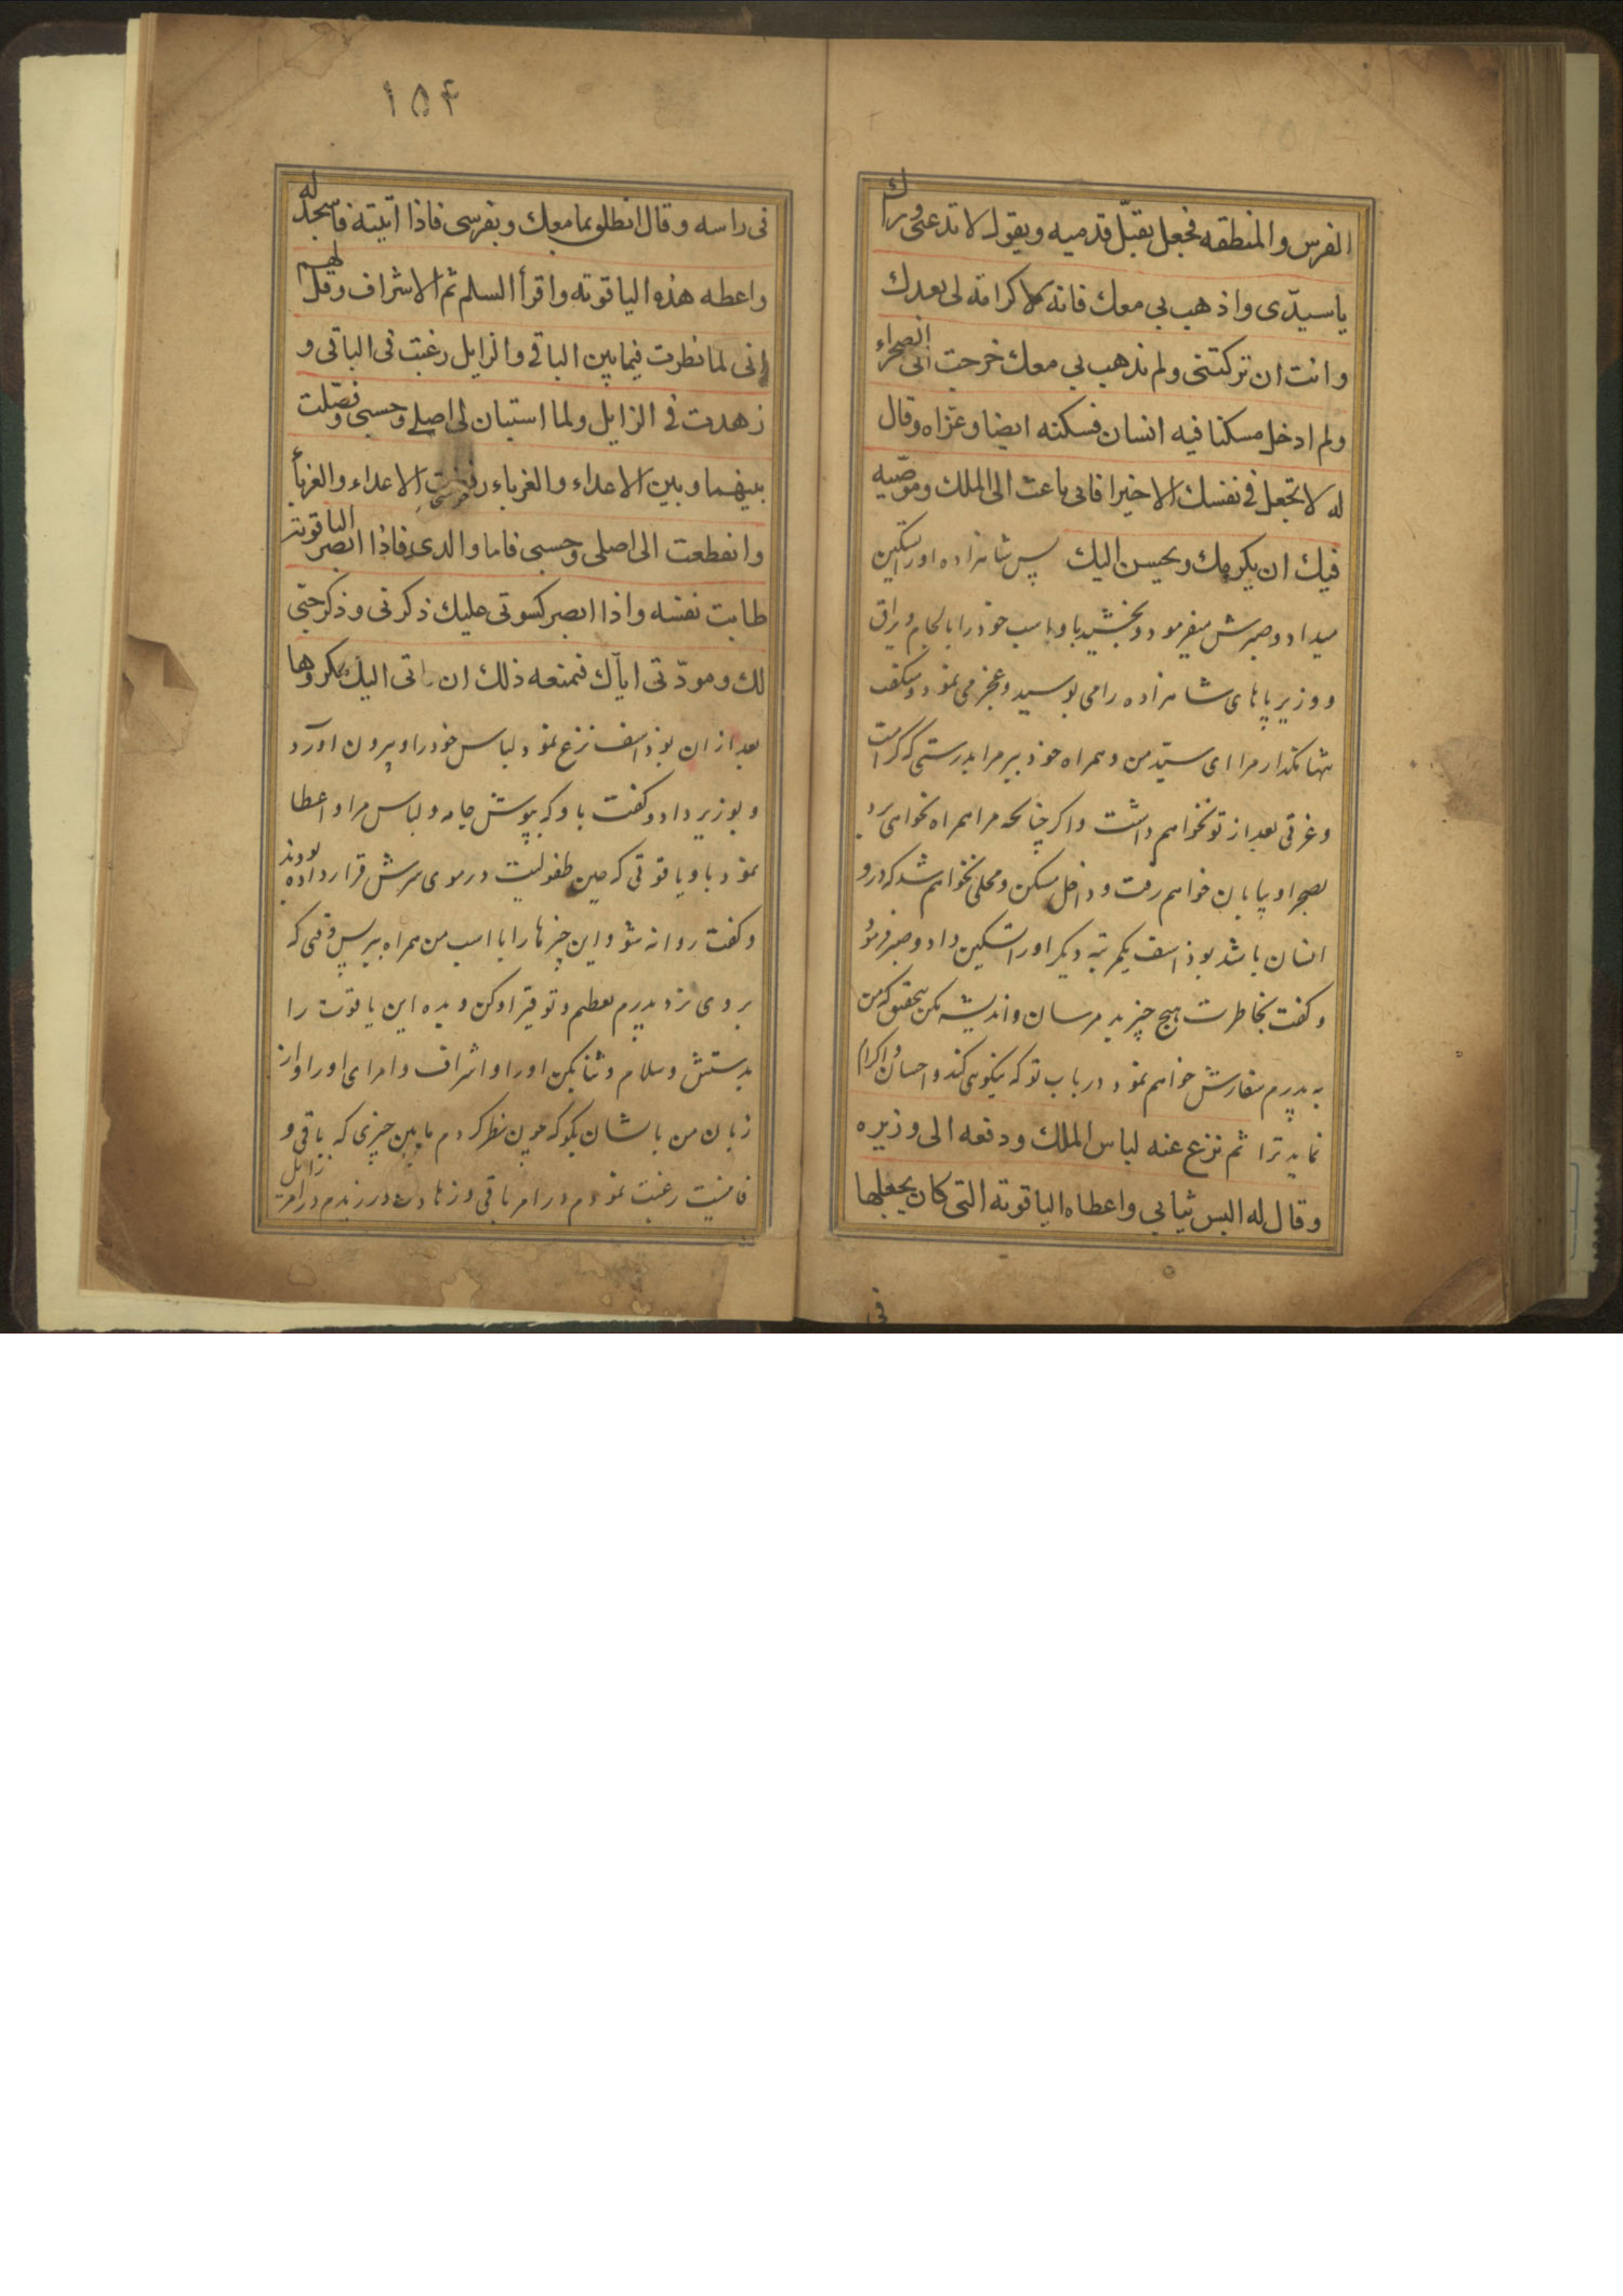 الفرس والمنطقه فجعل يقبّل قدميه ويقول لا تدعنی وراك
ياسيدّی واذهب بی معك فانه لا كرامة لی بعدك
وانت ان تركتنی ولم تذهب بی معك خرجت الی الصحراء
ولم ادخل مسكنا فيه انسان فسكنه ايضا وعزاه وقال
له لا تجعل فی نفسك الا خيرا فانی باعث الی الملك وموصّيه
فيك ان يكرمك ويحسن اليك پس شاهزاده اورا تسكين
ميداد وصبرش ميفرمود و بخشيد باو اسب خود را با لجام و يراق
و وزير پاهای شاهزاده را می بوسيد و عجز می نمود و ميگفت
تنها مگذار مرا ای سيّد من و همراه خود ببر مرا بدرستی كه كرامت
و عزتی بعد از تو نخواهم داشت و اكر چنانچه مرا همراه نخواهی برد
بصحرا و بيابان خواهم رفت و داخل مسكن و محلی نخواهم شد كه درو
انسان باشد بوذاسف يكمرتبه ديكر اورا تسكين داد و صبر فرمود
و كفت بخاطرت هيچ چيز بد مرسان و انديشه مكن بتحقيق كه من
به پدرم سفارش خواهم نمود در باب تو كه نيكوی كند و احسان و اكرام
نمايد ترا ثم نزع عنه لباس الملك ودفعه الی وزيره
وقال له البس ثيابی واعطاه الياقوتة التی كان يجعلها
فی
١٥٤
فی راسه وقال انطلق بما معك وبفرسی فاذا اتيته فاسجد له
واعطه هذه الياقوتة واقرأ السلم ثم الاشراف وقل لهم
انی لما نظرت فيما بين الباقی والزايل رغبت فی الباقی و
زهدت فی الزايل ولما استبان لی اصلی وحسبی وفصّلت
بينهما وبين الاعداء والغرباء رفضت الاعداء والغربأ
وانقطعت الی اصلی وحسبی فاما والدی فاذا ابصر الياقوتة
طابت نفسه واذا ابصر كسوتی عليك ذكرنی وذكر حبّی
لك ومودّتی اياك فمنعه ذلك ان ياتی اليك مكروها
بعد از ان بوذاسف نزع نمود لباس خود را و بيرون آورد
و بوزير داد و كفت باو كه بپوش جامه و لباس مرا و اعطا
نمود باو ياقوتی كه حين طفوليت در موی سرش قرار داده بودند
و كفت روانه شو و اين چيزها را با اسب من همراه ببر پس وقتی كه
بروی نزد پدرم تعظيم و توقير او كن و بده اين ياقوت را
بدستش و سلام و ثنا بكن اورا و اشراف و امرای اورا و از
زبان من باشان بكو كه چون نظر كردم مابين چيزی كه باقی و
فانيست رغبت نمودم در امر باقی و زهادت ورزيدم در امر زايل